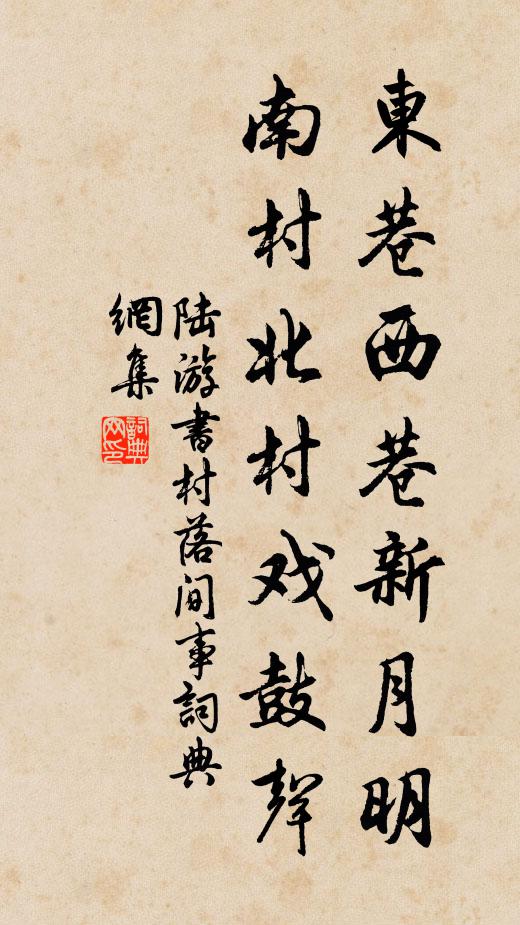 東巷西巷新月明
南村北村戏鼓聲
陆游書村落间事詞典
網集
詞典
网印